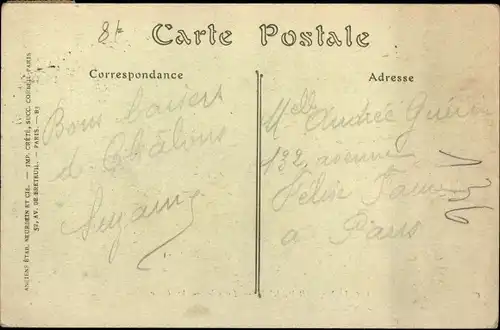 8 F
Carte Postale
Correspondance
Adresse
Bons baisers
de Châlons
Suzanne
Melle Andrée Guérin
132, avenue
Félix Faure
à Paris
ANCIENS ÉTAB. NEURDEIN ET CIE. — IMP. CRÉTÉ, SUCC. CORBEIL-PARIS
52, AV. DE BRETEUIL. — PARIS.